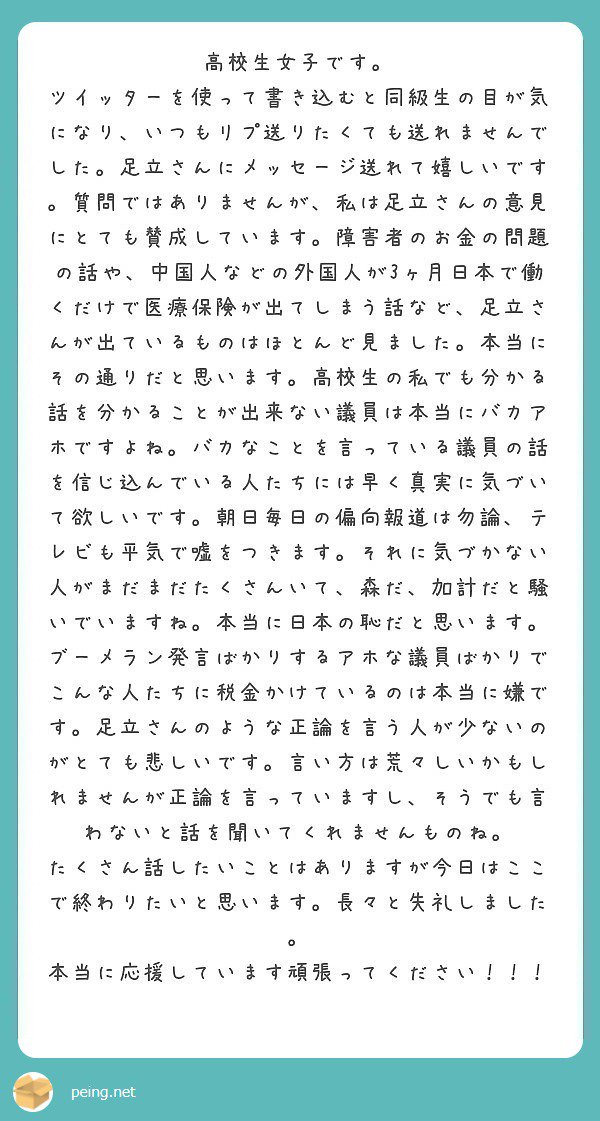 高校生女子です。
ツイッターを使って書き込むと同級生の目が気
になり、いつもリプ送りたくても送れませんで
した。足立さんにメッセージ送れて嬉しいです
。質問ではありませんが、私は足立さんの意見
にとても賛成しています。障害者のお金の問題
の話や、中国人などの外国人が3ヶ月日本で働
くだけで医療保険が出てしまう話など、足立さ
んが出ているものはほとんど見ました。本当に
その通りだと思います。高校生の私でも分かる
話を分かることが出来ない議員は本当にバカア
ホですよね。バカなことを言っている議員の話
を信じ込んでいる人たちには早く真実に気づい
て欲しいです。朝日毎日の偏向報道は勿論、テ
レビも平気で嘘をつきます。それに気づかない
人がまだまだたくさんいて、森だ、加計だと騒
いでいますね。本当に日本の恥だと思います。
ブーメラン発言ばかりするアホな議員ばかりで
こんな人たちに税金かけているのは本当に嫌で
す。足立さんのような正論を言う人が少ないの
がとても悲しいです。言い方は荒々しいかもし
れませんが正論を言っていますし、そうでも言
わないと話を聞いてくれませんものね。
たくさん話したいことはありますが今日はここ
で終わりたいと思います。長々と失礼しました
。
本当に応援しています頑張ってください！！！
peing.net